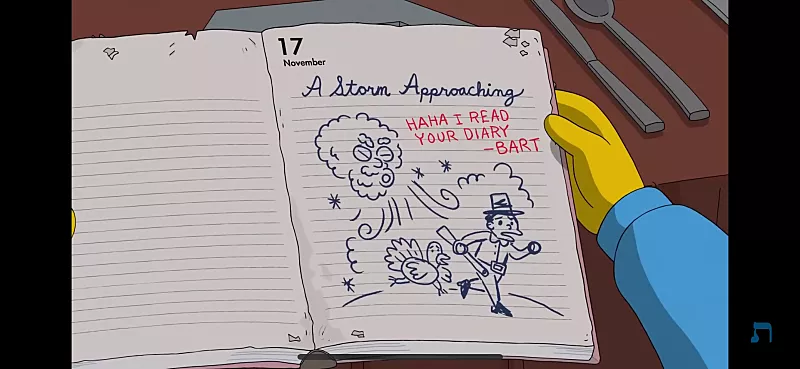 17
November
A Storm Approaching
HAHA I READ
YOUR DIARY
-BART
ת